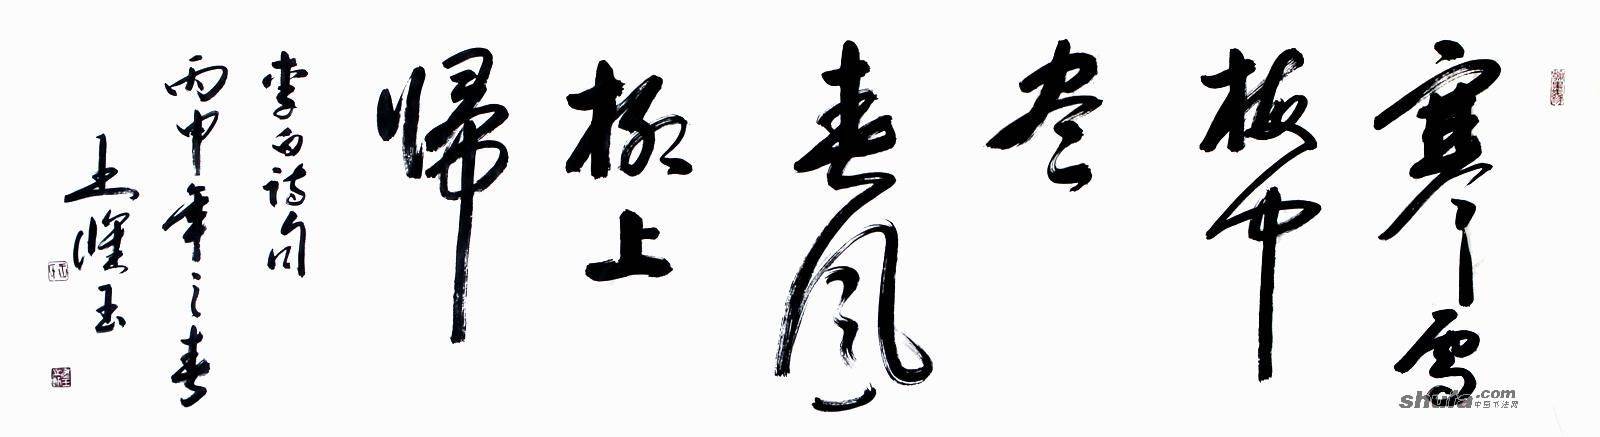 寒雪
梅中
尽
春风
柳上
歸
李白诗句
丙申年之春
玉
shufa.com
中国书法网